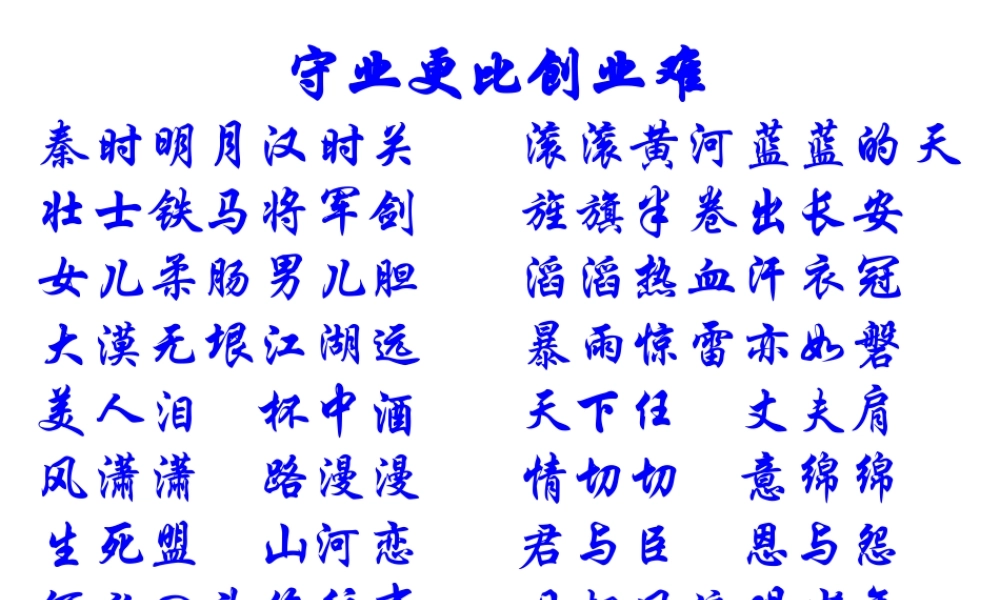 守业更比创业难
秦时明月汉时关 滚滚黄河蓝蓝的天
壮士铁马将军剑 旌旗半卷出长安
女儿柔肠男儿胆 滔滔热血汗衣冠
大漠无垠江湖远 暴雨惊雷亦如磐
美人泪 杯中酒 天下任 丈夫肩
风潇潇 路漫漫 情切切 意绵绵
生死盟 山河恋 君与臣 恩与怨